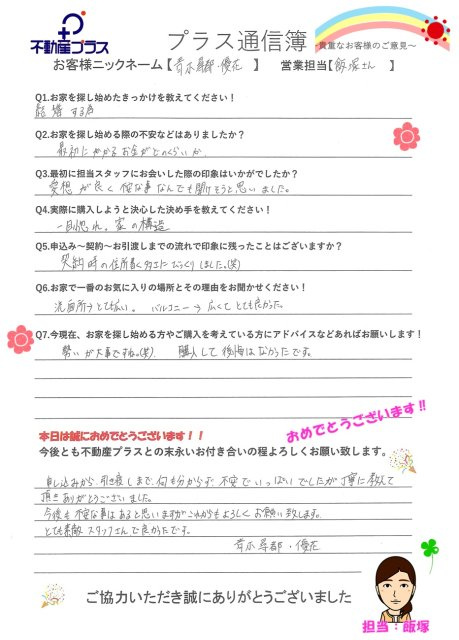 不動産プラス
プラス通信簿 ~貴重なお客様のご意見~
お客様ニックネーム【 優花 】 営業担当【 飯塚さん 】
Q1.お家を探し始めたきっかけを教えてください！
結婚する為
Q2.お家を探し始める際の不安などはありましたか？
最初にかかるお金がどのくらいか。
Q3.最初に担当スタッフにお会いした際の印象はいかがでしたか？
愛想が良く 何な事なんでも聞けそうと思いました。
Q4.実際に購入しようと決心した決め手を教えてください！
一目惚れ。家の構造
Q5.申込み～契約～お引渡しまでの流れで印象に残ったことはございますか？
契約時の住所書く多さにびっくりしました。(笑)
Q6.お家で一番のお気に入りの場所とその理由をお聞かせください！
洗面所→とても広い。 バルコニー→広くてとても良かった。
Q7.今現在、お家を探し始める方やご購入を考えている方にアドバイスなどあればお願いします！
勢いが大事ですね。(笑) 購入して後悔はなかったです。
おめでとうございます!!
本日は誠におめでとうございます！！
今後とも不動産プラスとの末永いお付き合いの程よろしくお願い致します。
申し込みから引き渡しまで何も分からず不安でいっぱいでしたが丁寧に教えて
頂きありがとうございました。
今後も不安な事はあると思いますがこれからもよろしくお願い致します。
とても素敵スタッフさんで良かったです。
優花
ご協力いただき誠にありがとうございました
担当：飯塚